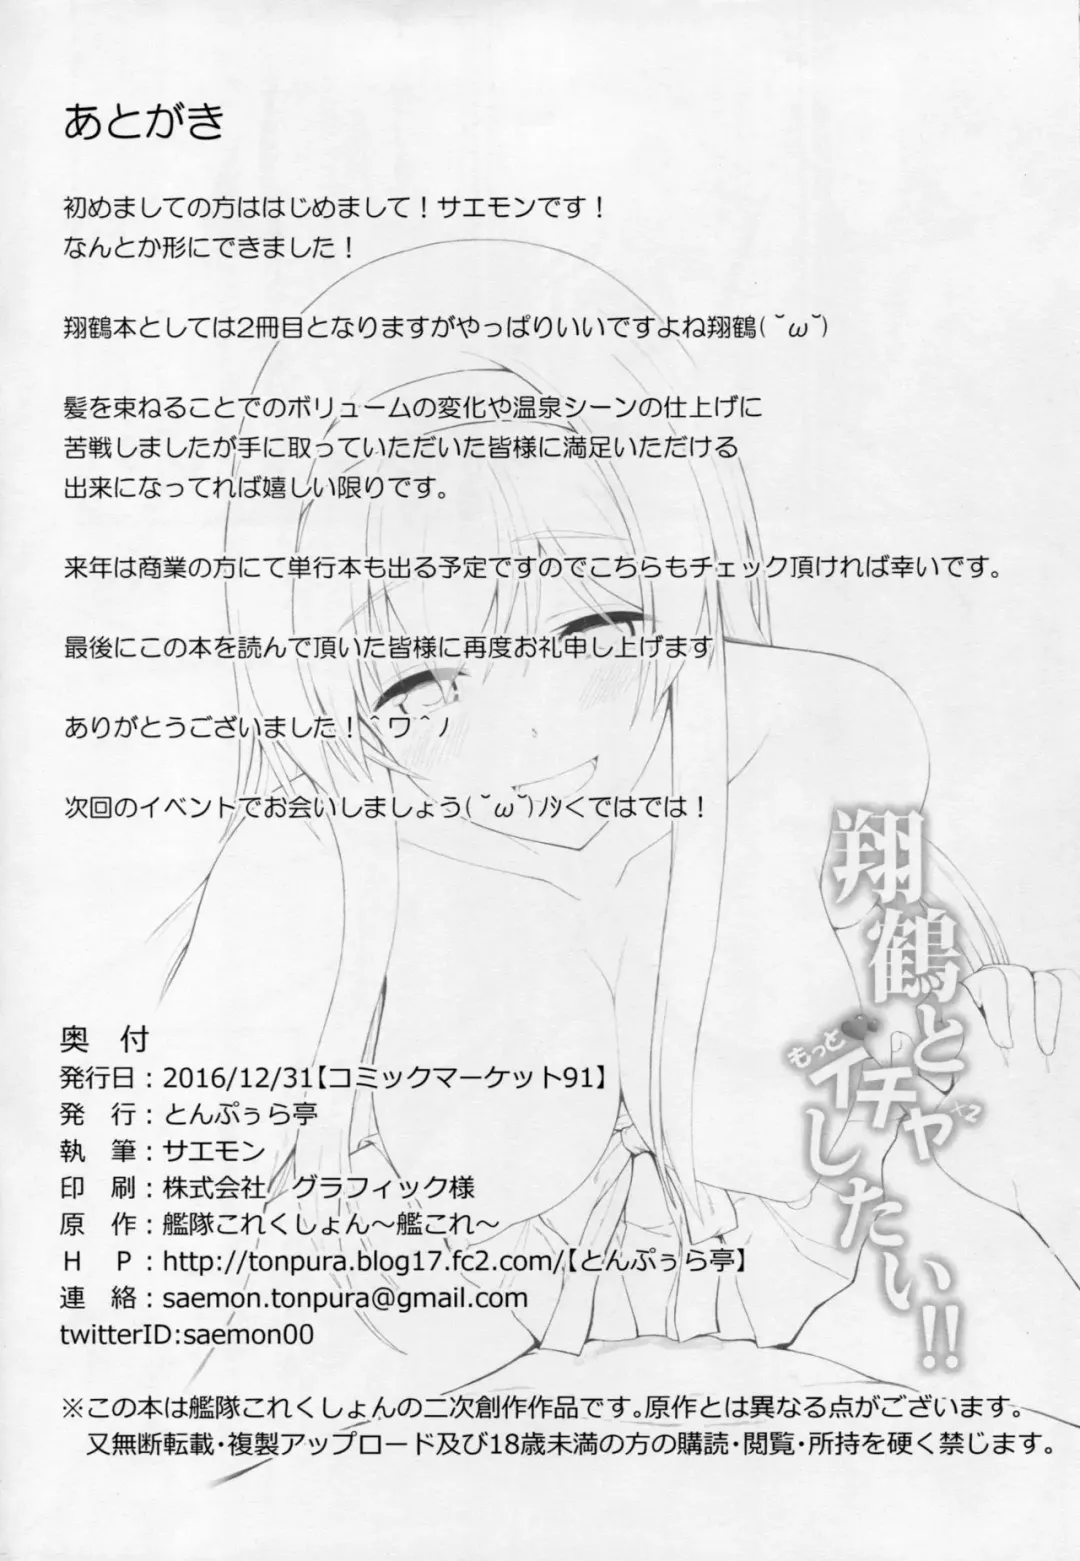 あとがき
初めましての方ははじめまして！サエモンです！
なんとか形にできました！
翔鶴本としては2冊目となりますがやっぱりいいですよね翔鶴(˘ω˘)
髪を束ねることでのボリュームの変化や温泉シーンの仕上げに
苦戦しましたが手に取っていただいた皆様に満足いただける
出来になってれば嬉しい限りです。
来年は商業の方にて単行本も出る予定ですのでこちらもチェック頂ければ幸いです。
最後にこの本を読んで頂いた皆様に再度お礼申し上げます
ありがとうございました！＾ワ＾ノ
次回のイベントでお会いしましょう(˘ω˘)ﾉｼくではでは！
翔鶴と
もっと
イチャ×2
したい!!
奥　付
発行日：2016/12/31【コミックマーケット91】
発　行：とんぷぅら亭
執　筆：サエモン
印　刷：株式会社　グラフィック様
原　作：艦隊これくしょん～艦これ～
Ｈ　Ｐ：http://tonpura.blog17.fc2.com/【とんぷぅら亭】
連　絡：saemon.tonpura@gmail.com
twitterID:saemon00
※この本は艦隊これくしょんの二次創作作品です。原作とは異なる点がございます。
又無断転載・複製アップロード及び18歳未満の方の購読・閲覧・所持を硬く禁じます。